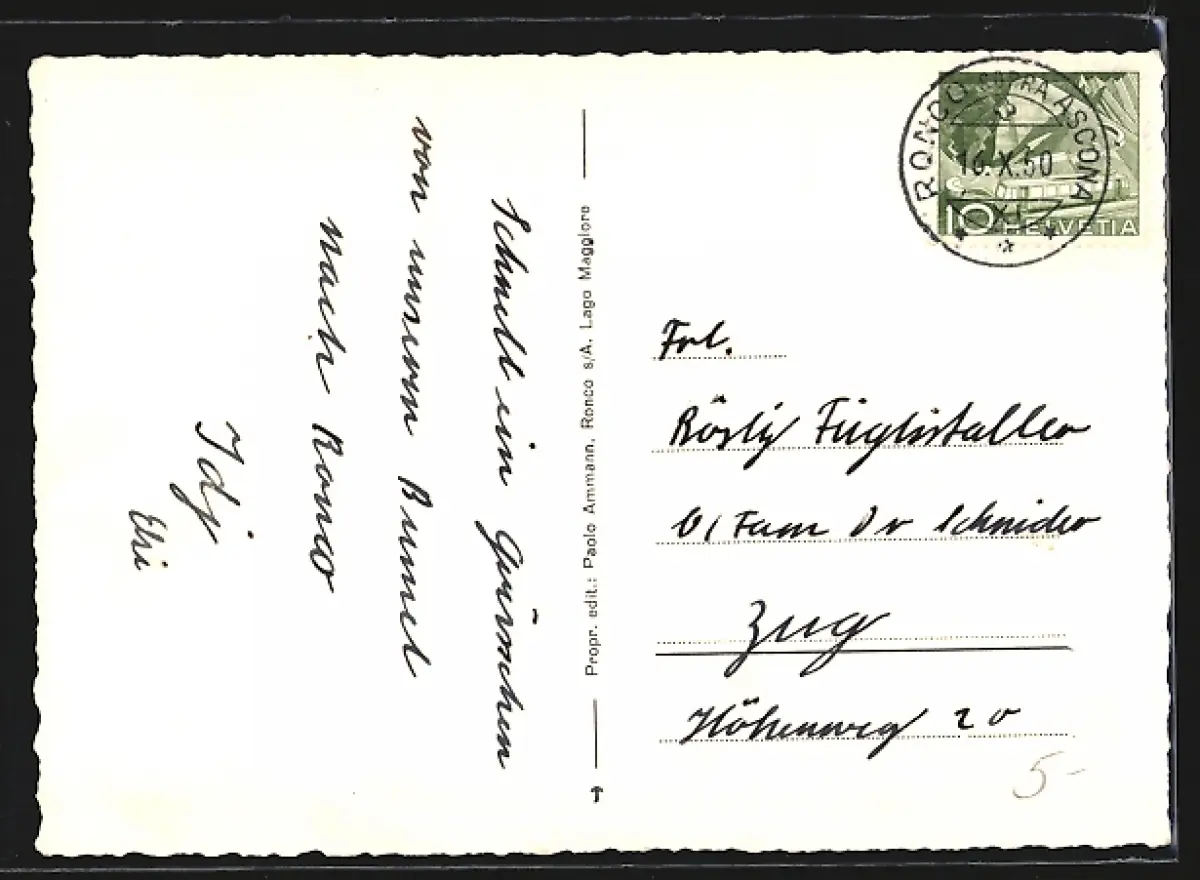 Schnell ein Grüsschen
von unserem Bummel
nach Ronco
Idj
Elsi
Propr. edit.: Paolo Ammann, Ronco s/A. Lago Maggiore
RONCO SOPRA ASCONA
16.X.50
XI
10 HELVETIA
Frl.
Rösly Füglistaller
b/ Fam Dr Schnider
Zug
Höhenweg 20
5-